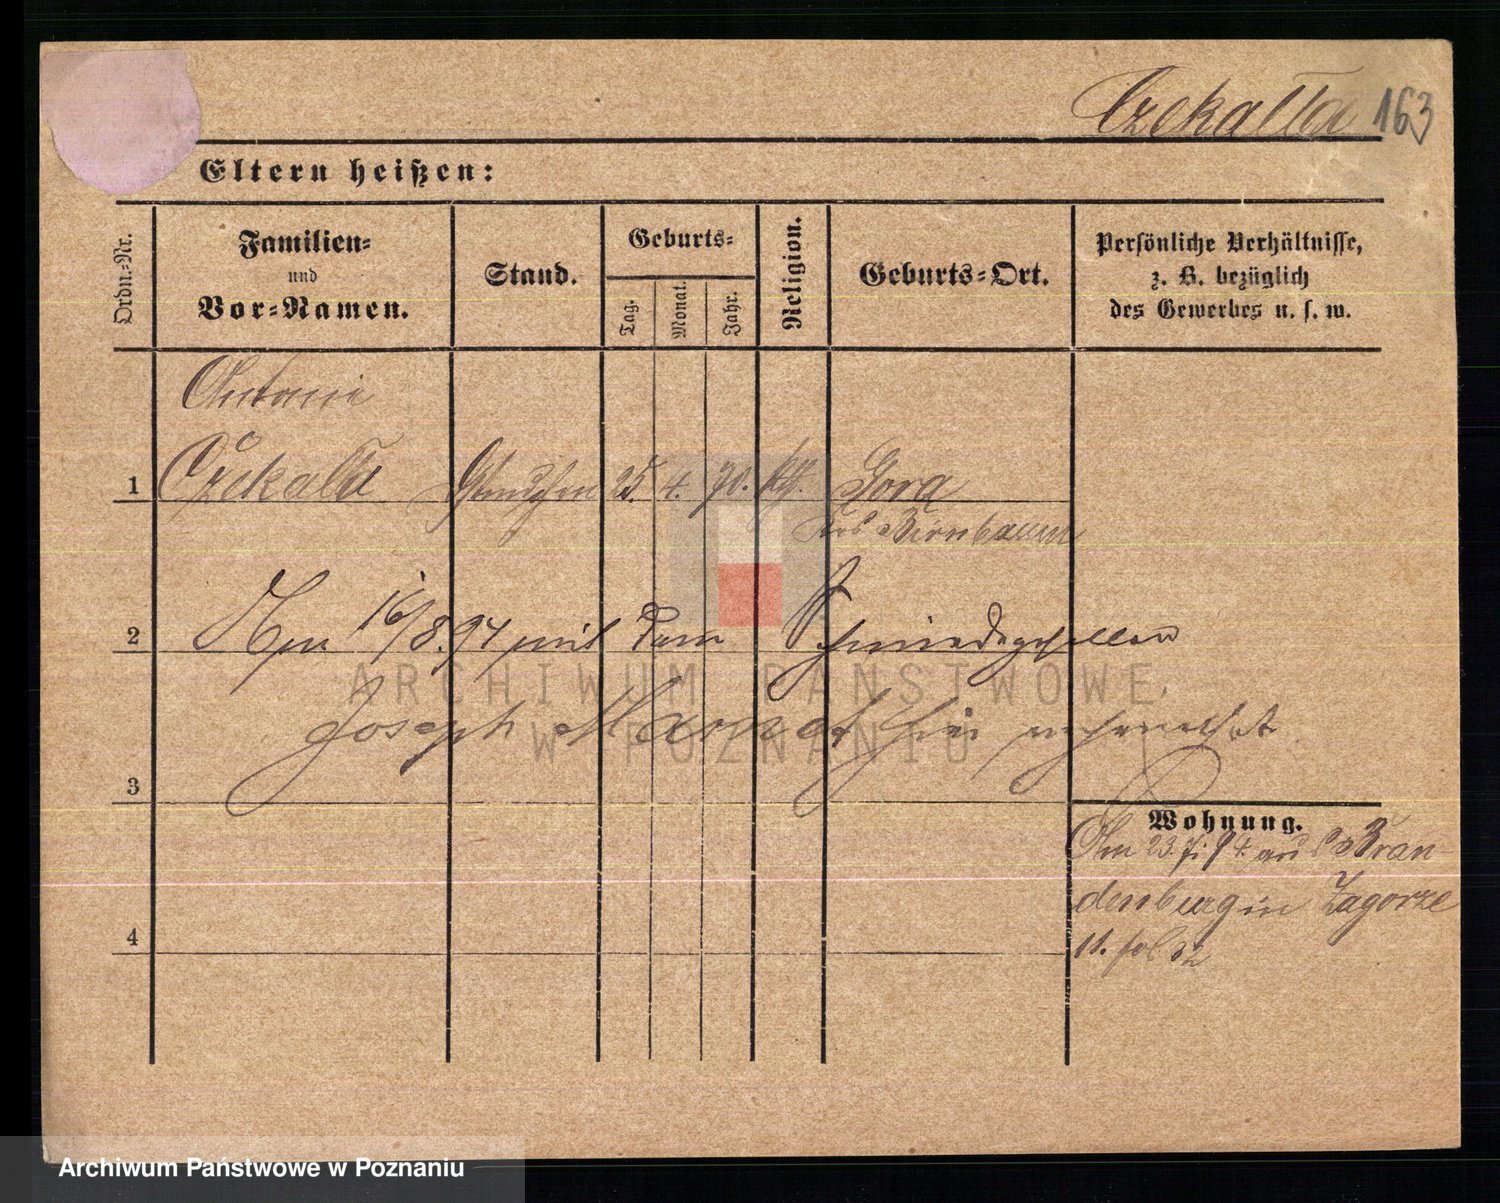 Czekalla 163
Eltern heißen:
Ordn.-Nr.
Familien-
und
Vor-Namen.
Stand.
Geburts-
Tag.
Monat.
Jahr.
Religion.
Geburts-Ort.
Persönliche Verhältnisse,
z. B. bezüglich
des Gewerbes u. s. w.
1 Czekalla 25. 4. 70. kth. Gora
Krs Birnbaum
2 Am 16/8.94 mit dem Schmiedegesellen
Joseph hier verheirathet
3
Wohnung.
Am 23.7.94 aus Bran-
denburg in Zagorze
11.
4
ARCHIWUM PAŃSTWOWE
W POZNANIU
Archiwum Państwowe w Poznaniu